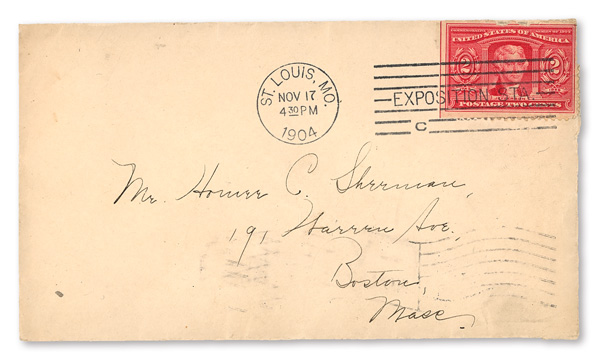 UNITED STATES OF AMERICA
2 2
POSTAGE TWO CENTS
ST. LOUIS, MO.
NOV 17
4 30 PM
1904
EXPOSITION STA.
C
Mr. Homer C. Sherman,
191 Warren Ave,
Boston,
Mass.